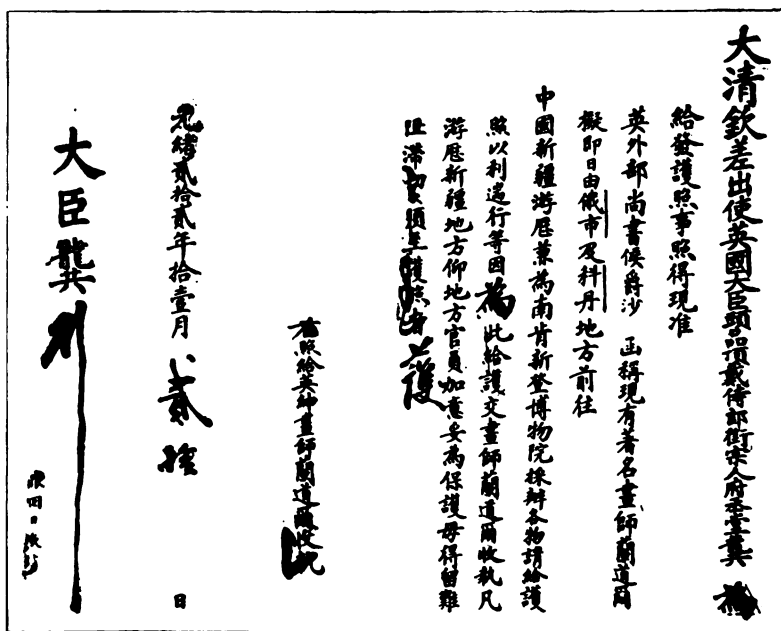 大清欽差出使英國大臣頭品頂戴侍郎銜宗人府丞堂龔 為
給發護照事照得現准
英外部尚書侯爵沙 函稱現有著名畫師蘭道爾
擬即日由俄市及抖丹地方前往
中國新疆游歷兼為南肯新登博物院採辦各物請給護
照以利遄行等因為此給護交畫師蘭道爾收執凡
游歷新疆地方仰地方官員加意妥為保護毋得留難
阻滯切 須至護照者 護
右照給英紳畫師蘭道爾收執
光緒貳拾貳年拾壹月 貳拾 日
大臣龔